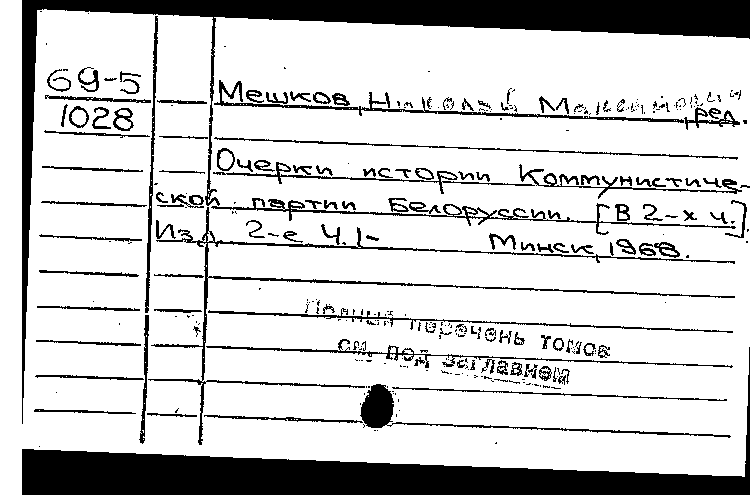 69-5
1028
Мешков, Николай Максимович, ред.
Очерки истории Коммунистиче-
ской партии Белоруссии. [В 2-х ч.].
Изд. 2-е Ч.1-   Минск, 1968.
Полный перечень томов
см. под заглавием